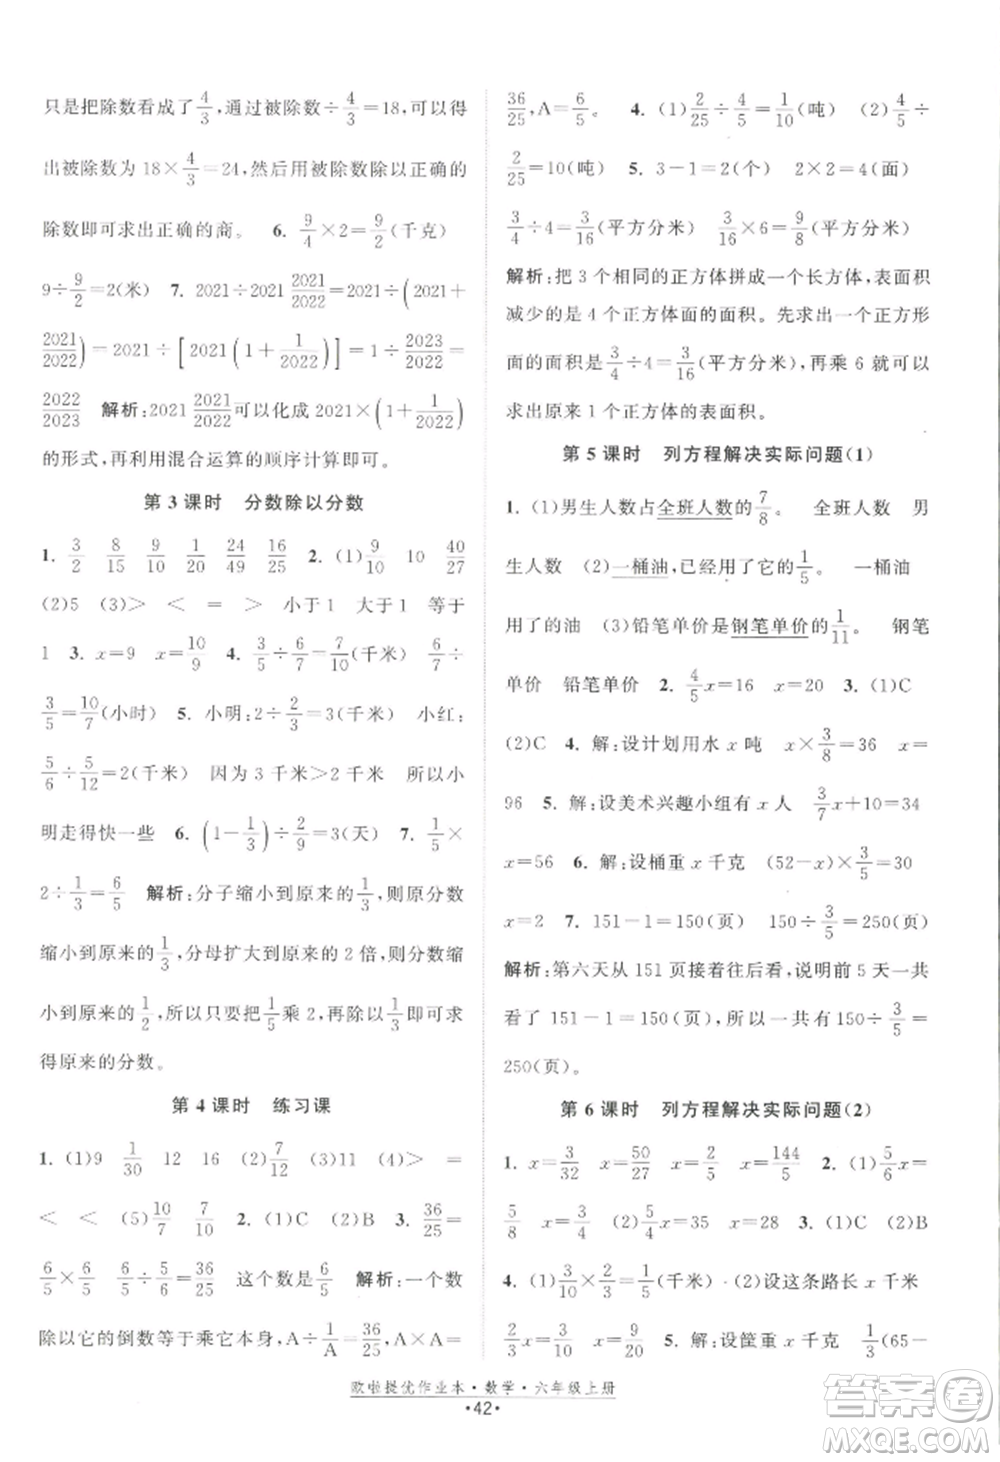 只是把除数看成了4/3,通过被除数÷4/3=18,可以得
出被除数为18×4/3=24,然后用被除数除以正确的
除数即可求出正确的商。 6. 9/4×2=9/2(千克)
9÷9/2=2(米) 7. 2021÷2021 2021/2022=2021÷(2021+
2021/2022)=2021÷[2021(1+1/2022)]=1÷2023/2022=
2022/2023 解析:2021 2021/2022可以化成2021×(1+1/2022)
的形式,再利用混合运算的顺序计算即可。
第 3 课时 分数除以分数
1. 3/2 8/15 9/10 1/2 24/49 16/25 2. (1)9/10 10 40/27
(2)5 (3)> < = > 小于1 大于1 等于
1 3. x=9 x=10/9 4. 3/5÷6/7=7/10(千米) 6/7÷
3/5=10/7(小时) 5. 小明:2÷2/3=3(千米) 小红:
5/6÷5/12=2(千米) 因为3千米>2千米 所以小
明走得快一些 6. (1-1/3)÷2/9=3(天) 7. 1/5×
2÷1/3=6/5 解析:分子缩小到原来的1/3,则原分数
缩小到原来的1/3,分母扩大到原来的2倍,则分数缩
小到原来的1/2,所以只要把1/5乘2,再除以1/3即可求
得原来的分数。
第 4 课时 练习课
1. (1)9 1/30 12 16 (2)7/12 (3)11 (4)> =
< < (5)10/7 7/10 2. (1)C (2)B 3. 36/25
6/5×6/5 6/5÷5/6=36/25 这个数是6/5 解析:一个数
除以它的倒数等于乘它本身,A÷1/A=36/25,A×A=
36/25,A=6/5。 4. (1)2/25÷4/5=1/10(吨) (2)4/5÷
2/25=10(吨) 5. 3-1=2(个) 2×2=4(面)
3/4÷4=3/16(平方分米) 3/16×6=9/8(平方分米)
解析:把3个相同的正方体拼成一个长方体,表面积
减少的是4个正方体面的面积。先求出一个正方形
面的面积是3/4÷4=3/16(平方分米),再乘6就可以
求出原来1个正方体的表面积。
第 5 课时 列方程解决实际问题(1)
1. (1)男生人数占全班人数的7/8。 全班人数 男
生人数 (2)一桶油,已经用了它的1/5。 一桶油
用了的油 (3)铅笔单价是钢笔单价的1/11。 钢笔
单价 铅笔单价 2. 4/5x=16 x=20 3. (1)C
(2)C 4. 解:设计划用水x吨 x×3/8=36 x=
96 5. 解:设美术兴趣小组有x人 3/7x+10=34
x=56 6. 解:设桶重x千克 (52-x)×3/5=30
x=2 7. 151-1=150(页) 150÷3/5=250(页)
解析:第六天从151页接着往后看,说明前5天一共
看了151-1=150(页),所以一共有150÷3/5=
250(页)。
第 6 课时 列方程解决实际问题(2)
1. x=3/32 x=50/27 x=2/5 x=144/5 2. (1)5/6x=
5/8 x=3/4 (2)5/4x=35 x=28 3. (1)C (2)B
4. (1)12/5÷3/4=16/5(千米) (2)设这条路长x千米
2/3x=3/10 x=9/20 5. 解:设筐重x千克 1/3(65-
欧啦提优作业本·数学·六年级上册
·42·
答案圈
MXQE.COM